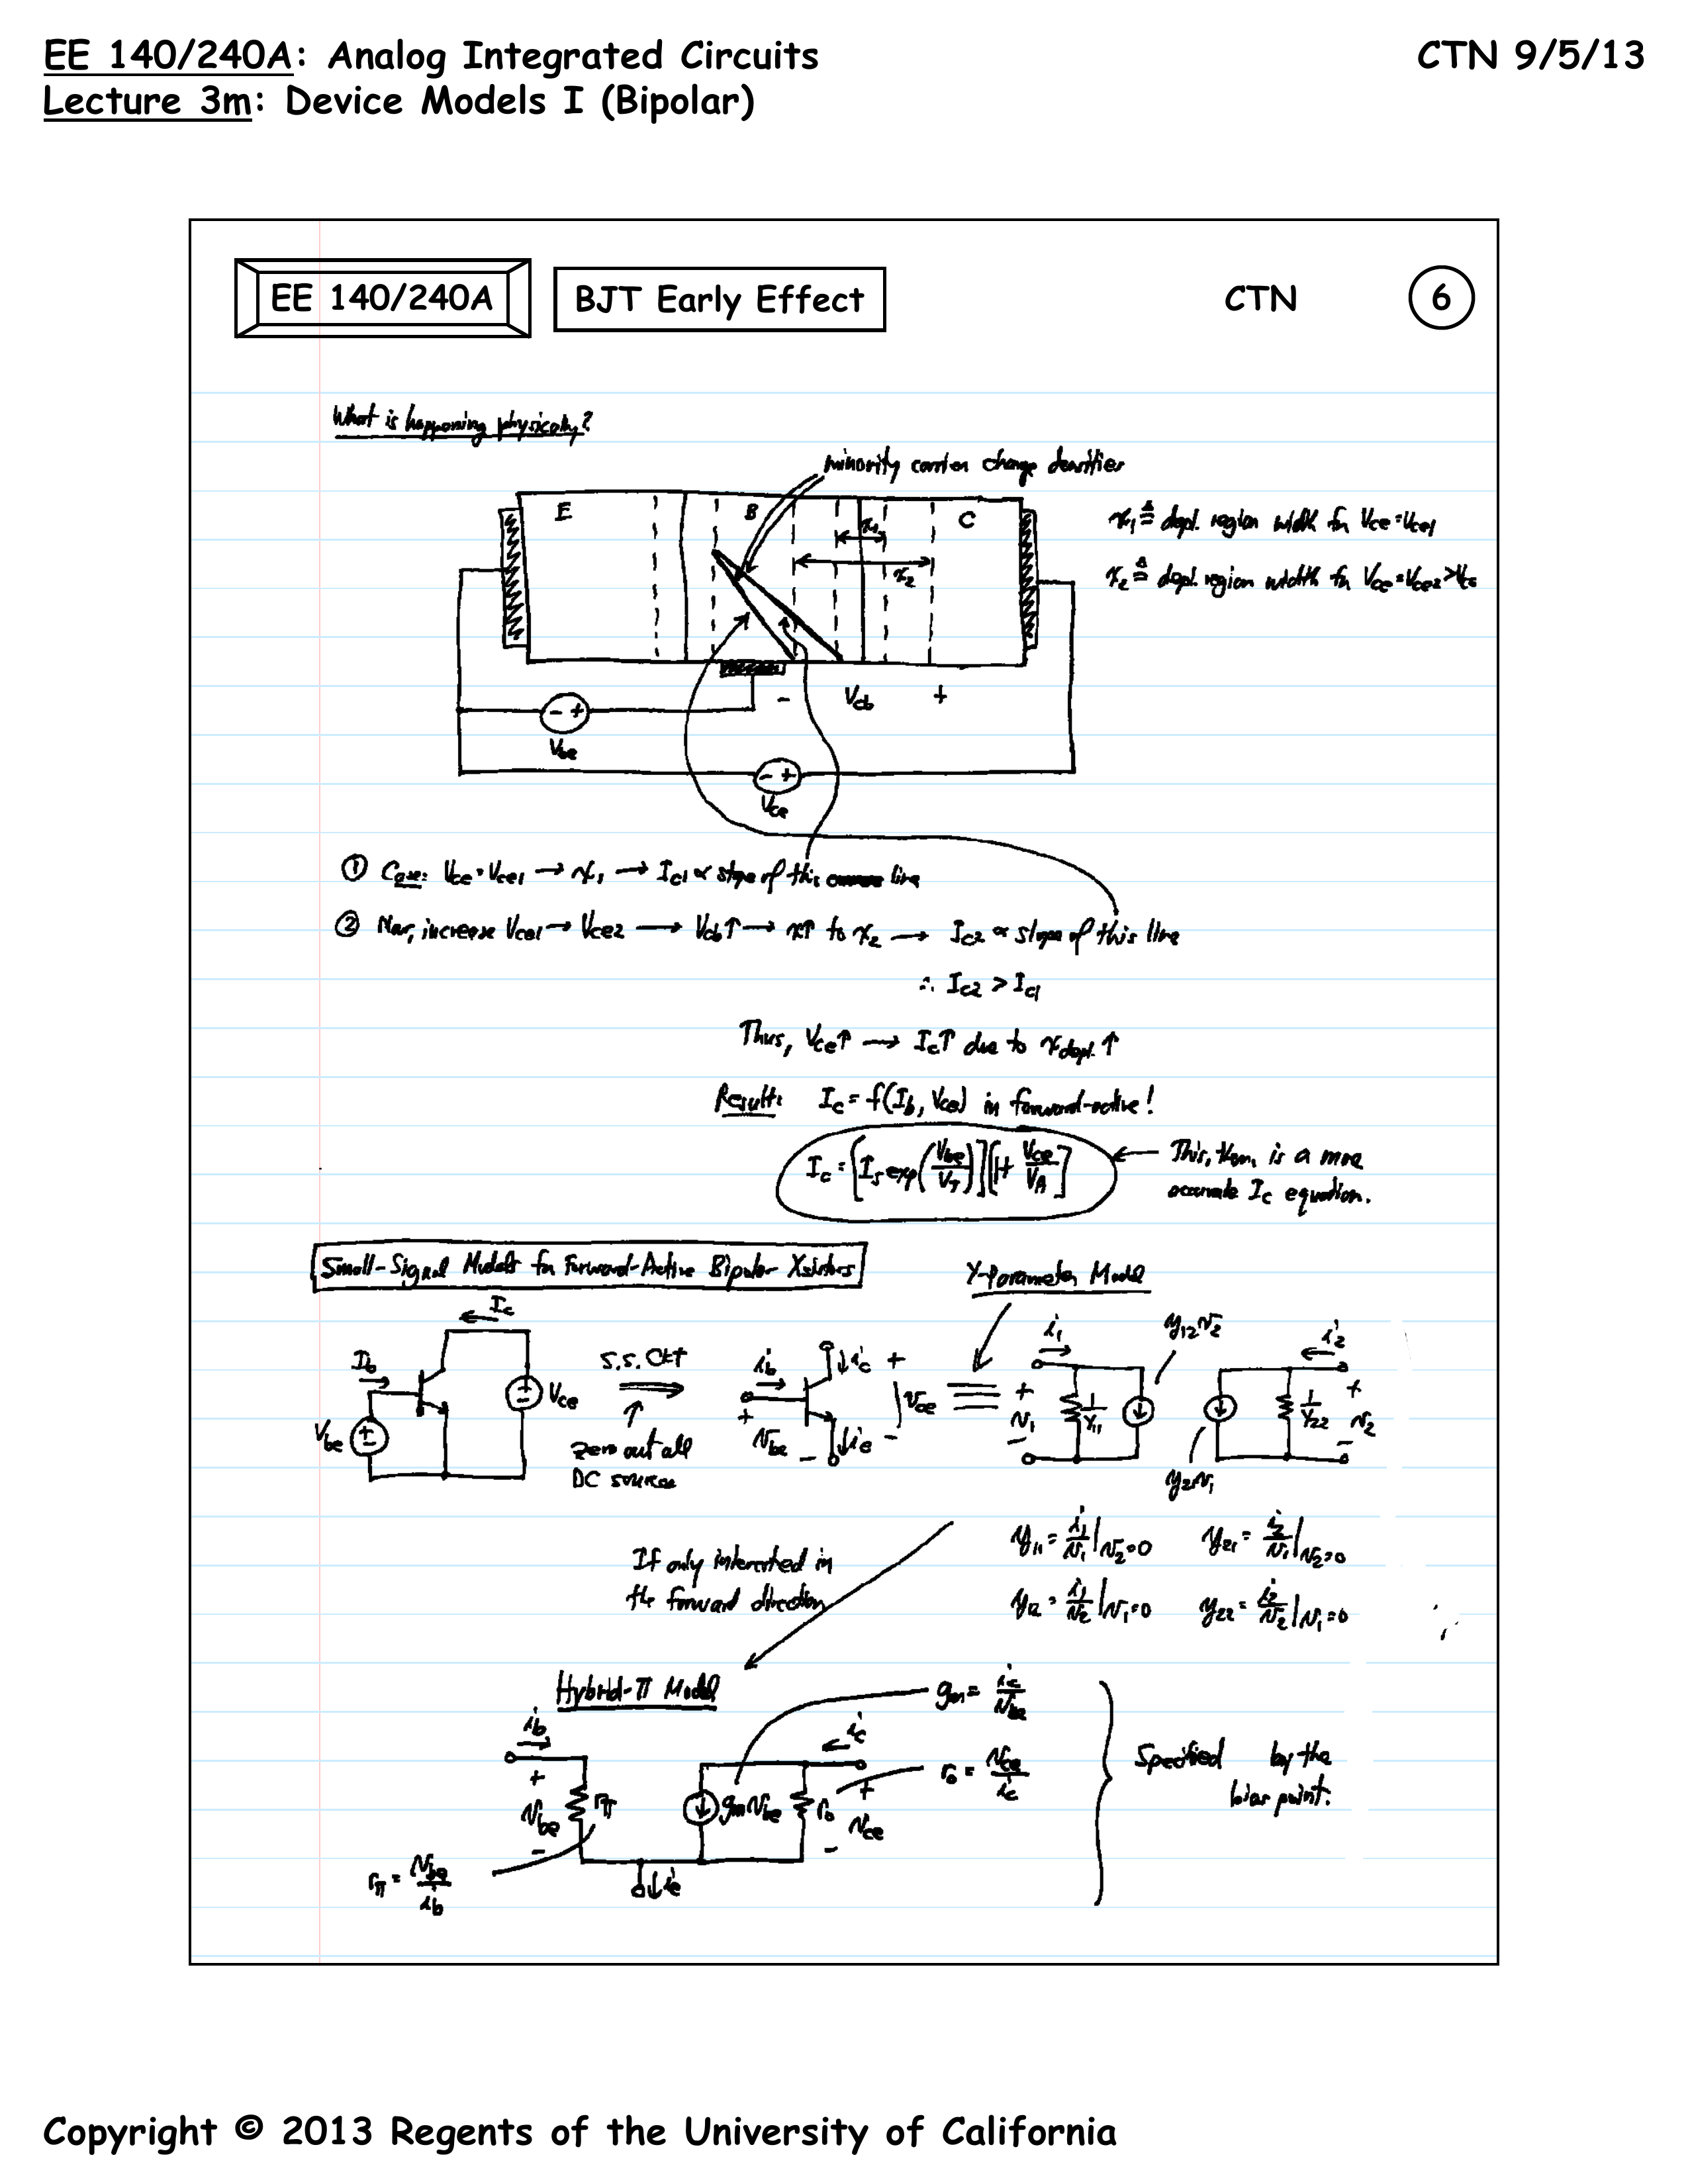 EE 140/240A: Analog Integrated Circuits CTN 9/5/13
Lecture 3m: Device Models I (Bipolar)
EE 140/240A BJT Early Effect CTN 6
What is happening physically?
minority carrier charge densities
E B x₁ C
x₂
x₁ ≜ depl. region width for Vce=Vce1
x₂ ≜ depl. region width for Vce=Vce2>Vce1
- Vcb +
- +
Vbe
- +
Vce
① Case: Vce=Vce1 → x₁ → Ic1 ∝ slope of this line
② Now, increase Vce1 → Vce2 → Vcb↑ → x↑ to x₂ → Ic2 ∝ slope of this line
∴ Ic2 > Ic1
Thus, Vce↑ → Ic↑ due to xdepl.↑
Result: Ic = f(Ib, Vce) in forward-active!
Ic = [Is exp(Vbe/VT)][1+ Vce/VA] ← This, then, is a more
accurate Ic equation.
Small-Signal Models for Forward-Active Bipolar Xsistors
Y-Parameter Model
Ic
Ib
Vbe
Vce
s.s. Ckt
zero out all
DC sources
ib
ic
+
vce
-
+ vbe -
ie
i₁
+
v₁
-
1/y₁₁
y₁₂v₂
y₂₁v₁
1/y₂₂
i₂
+
v₂
-
y₁₁ = i₁/v₁|v₂=0 y₂₁ = i₂/v₁|v₂=0
y₁₂ = i₁/v₂|v₁=0 y₂₂ = i₂/v₂|v₁=0
If only interested in
the forward direction
Hybrid-π Model
ib
+
vbe
-
rπ
gmvbe
ro
ic
+
vce
-
ie
gm = ic/vbe
ro = vce/ic
rπ = vbe/ib
Specified by the
bias point.
Copyright © 2013 Regents of the University of California